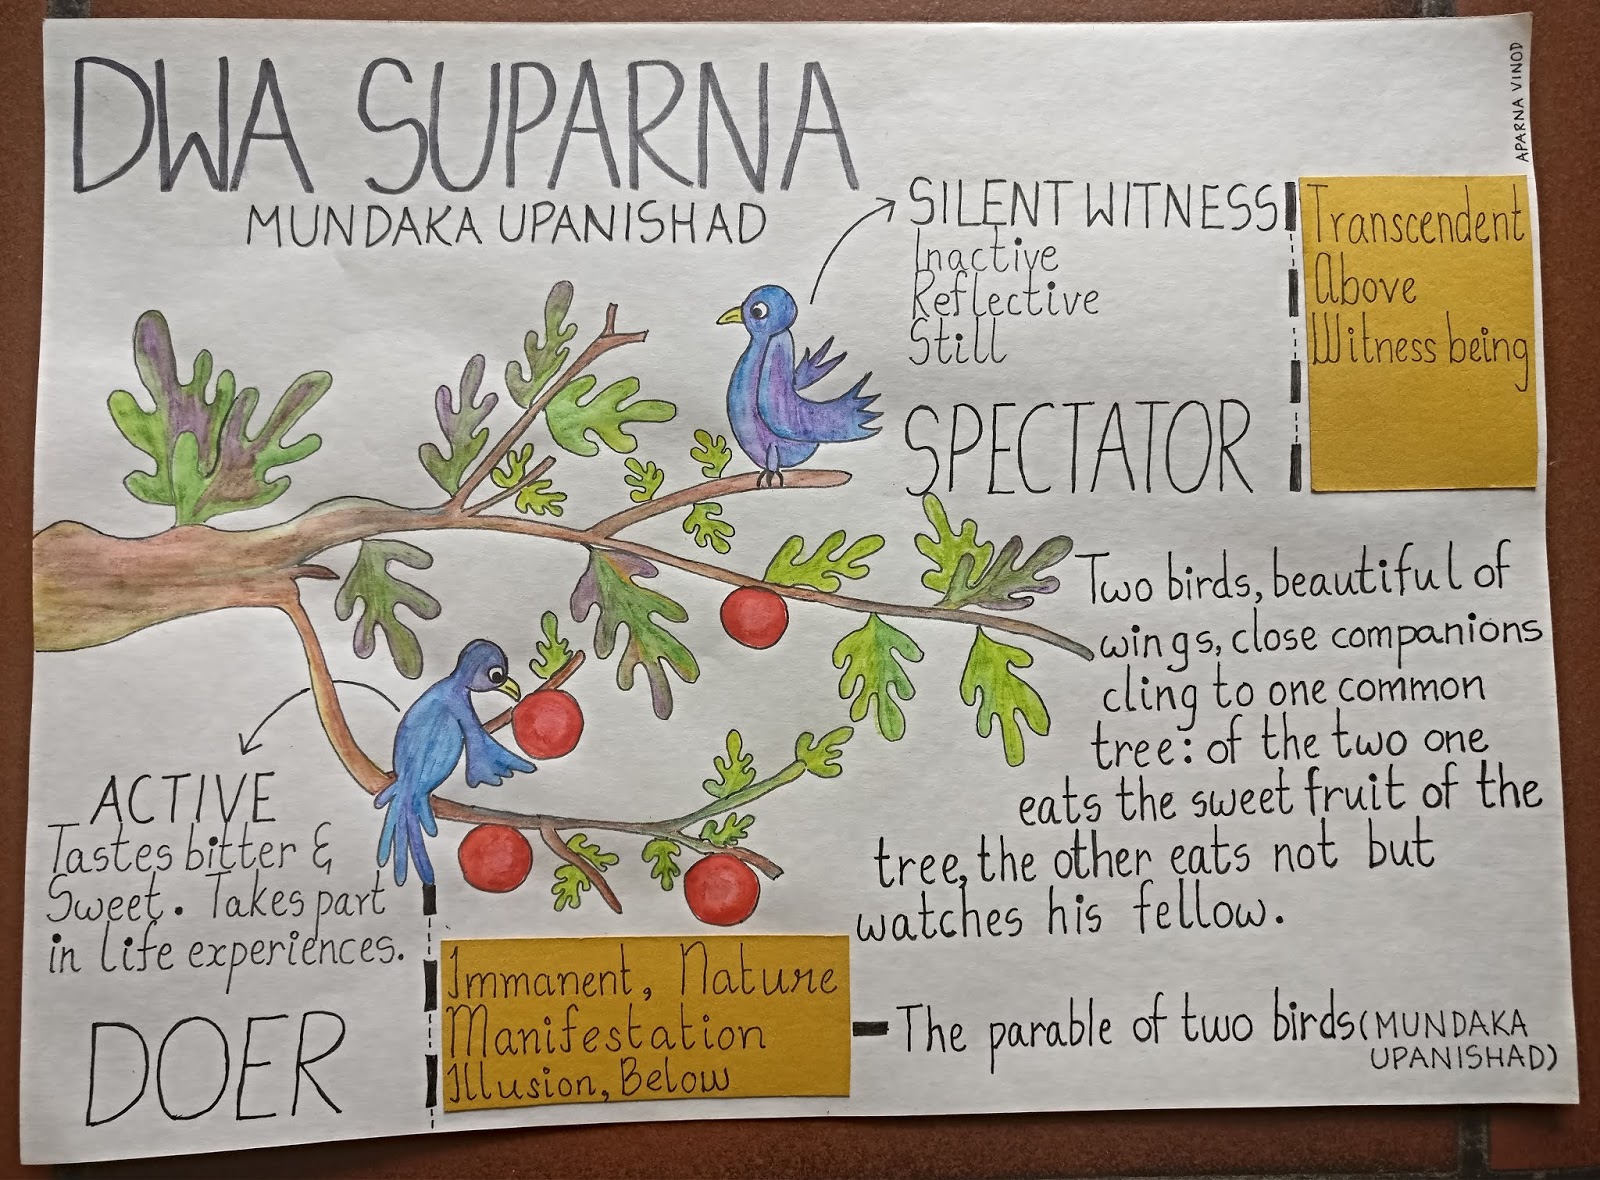 DWA SUPARNA
MUNDAKA UPANISHAD
APARNA VINOD
SILENT WITNESS
Inactive
Reflective
Still
SPECTATOR
Transcendent
Above
Witness being
Two birds, beautiful of
wings, close companions
cling to one common
tree: of the two one
eats the sweet fruit of the
tree, the other eats not but
watches his fellow.
ACTIVE
Tastes bitter &
Sweet. Takes part
in life experiences.
DOER
Immanent, Nature
Manifestation
Illusion, Below
- The parable of two birds (MUNDAKA
UPANISHAD)